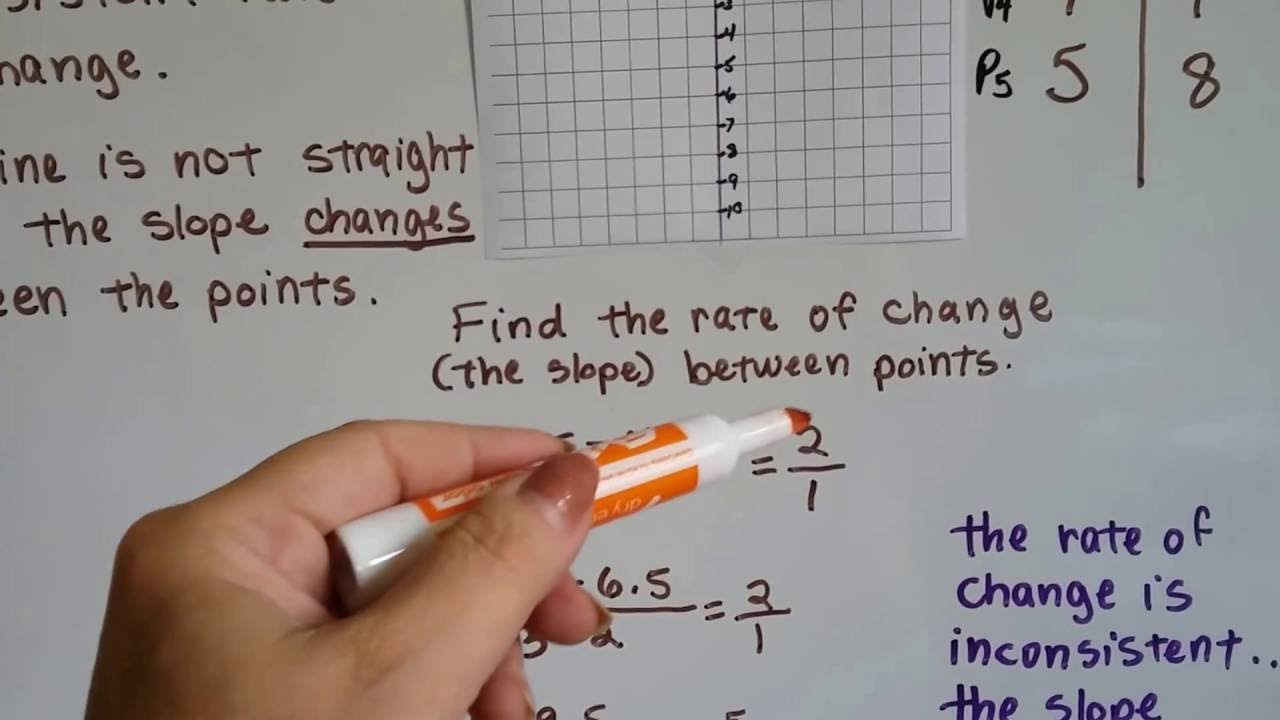 hange.
ine is not straight
the slope changes
een the points.
-4
-5
-6
-7
-8
-9
-10
P5 5 8
Find the rate of change
(the slope) between points.
= 2/1
6.5 = 2/1
2
the rate of
change is
inconsistent..
the slope